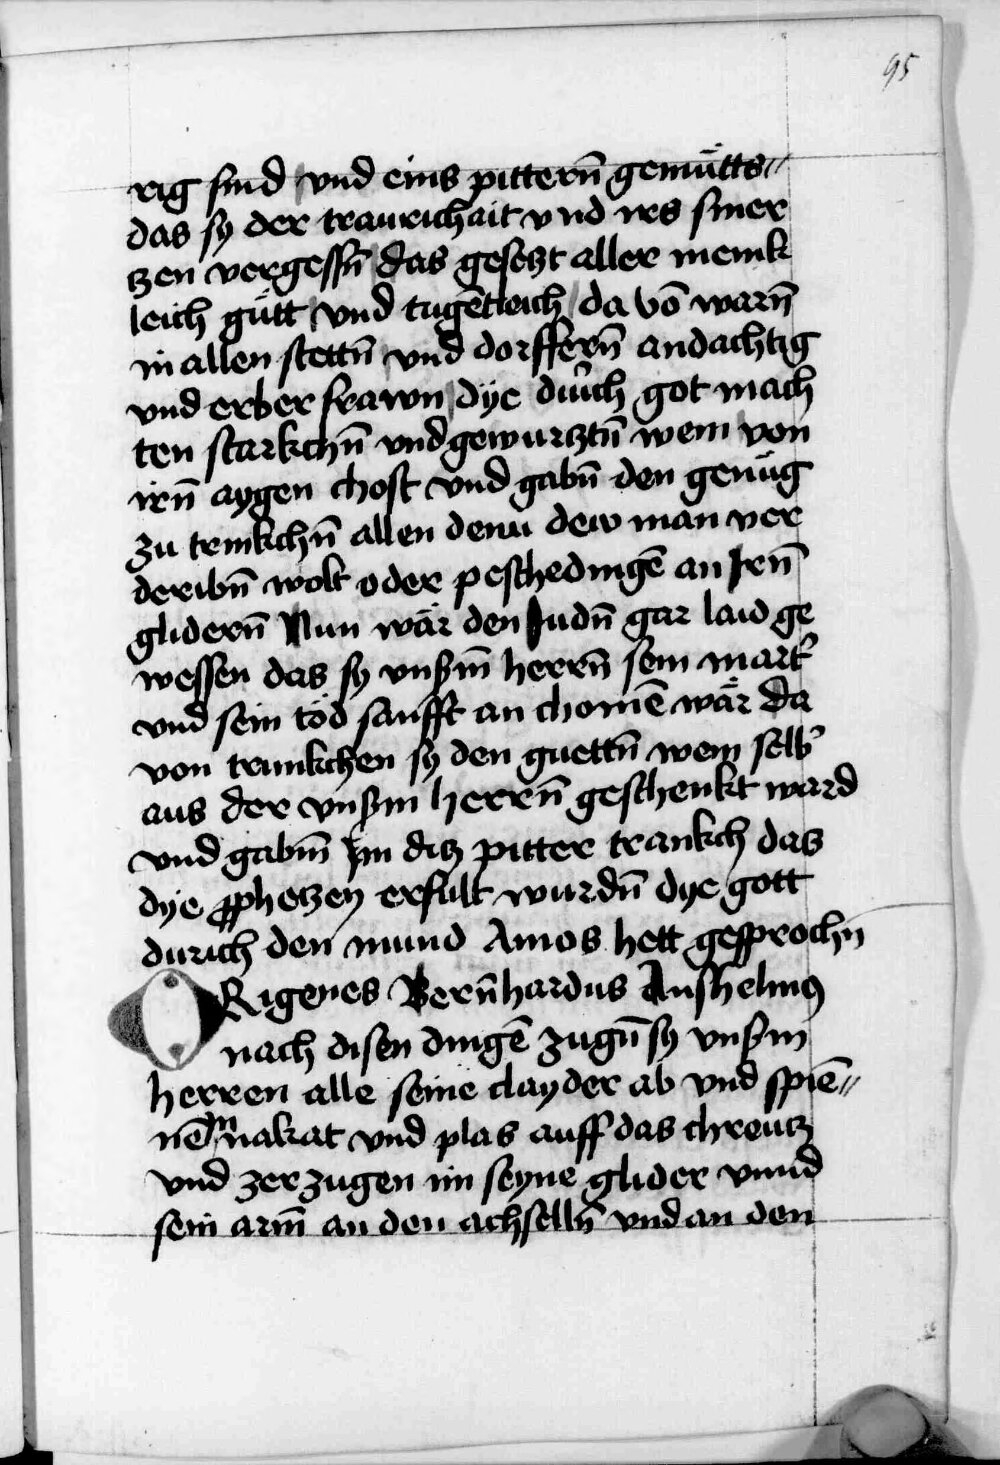 95
rig sind vnd eins pittern̄ gemütts〃
das sy der traurichait vnd irs smer
tzen vergessn̄ das gesetzt aller menik
leich gütt vnd tugētleich da vō warn̄
in allen stettn̄ vnd dorffern̄ andachtig
vnd erber frawn dye durch got mach
ten starkchn̄ vnd gewurtztn̄ wein von
irn̄ aygen chost vnd gabn̄ den genüg
zu trinkchn̄ allen denn dew man ver
deribn̄ wolt oder peschedingē an Irn̄
glidern̄ Nun wär den Judn̄ gar laid ge
wessen das sy vnßm̄ herrn̄ sein mart'
vnd sein töd saufft an chomē wär da
von trunkchen sy den guettn̄ wein selb'
aus der vnßm herrn̄ geschenkt ward
vnd gabm̄ Im ditz pitter trankch das
dye ꝓphetzey erfult wurdn̄ dye gott
durich den mund Amos hett gesprochn̄
ORigenes Bern̄hardus Anshelmꝰ
nach disen dingē zugn̄ sy vnßm
herren alle seine clayder ab vnd spiē〃
nē in nakat vnd plas auff das chreutz
vnd zerzugen im seyne glider vnnd
sein arm̄ an den achselln̄ vnd an den